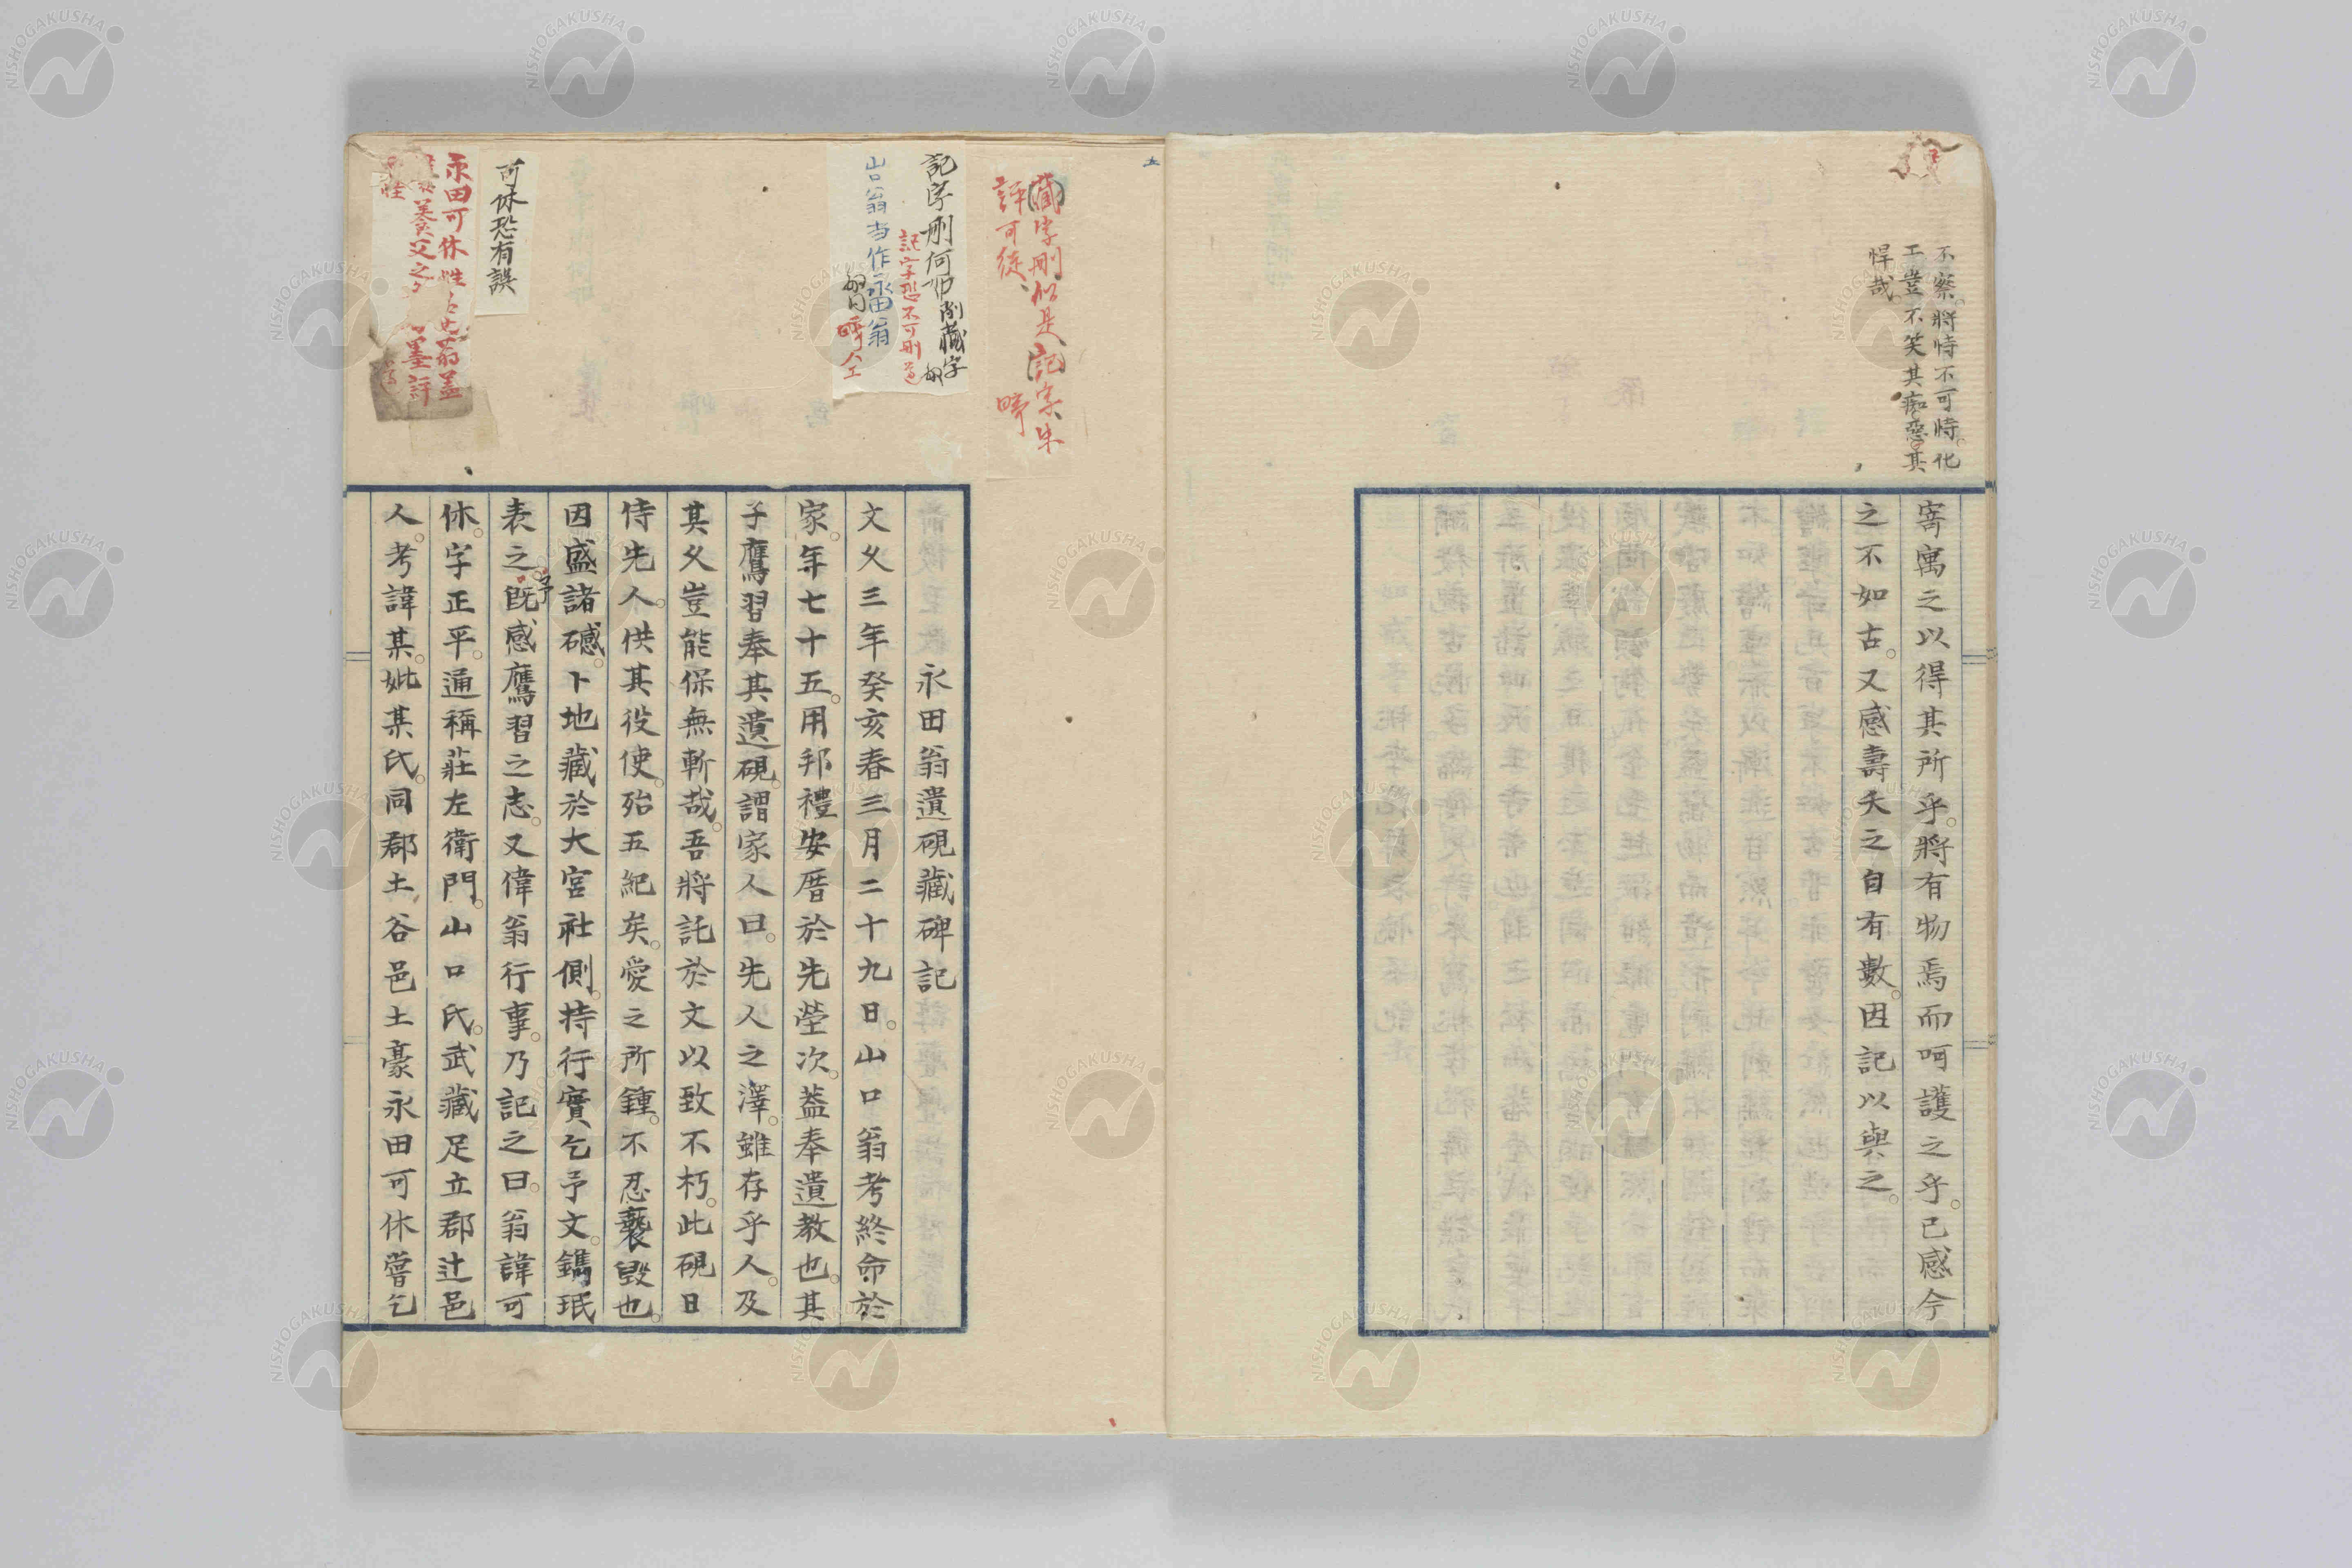 不察。將恃不可恃。化
工豈不笑其痴惡其
悍哉。
寄寓之以得其所乎。將有物焉而呵護之乎。已感今
之不如古。又感壽夭之自有數。因記以與之。
藏字刪似是、記字、朱
評可從、
記字刪何如 刪藏字
記字恐不可刪
山口翁当作永田翁
永田翁遺硯藏碑記
文久三年癸亥春三月二十九日。山口翁考終命於
家。年七十五。用邦禮安厝於先塋次。葢奉遺教也。其
子鷹習奉其遺硯。謂家人曰。先人之澤。雖存乎人。及
其久豈能保無斬哉。吾將託於文以致不朽。此硯日
侍先人。供其役使。殆五紀矣。愛之所鍾。不忍褻毀也。
因盛諸櫶。卜地藏於大宮社側。持行實乞予文。鐫珉
表之。予既感鷹習之志。又偉翁行事。乃記之曰。翁諱可
休。字正平。通稱莊左衛門。山口氏。武藏足立郡辻邑
人。考諱某。妣某氏。同郡土谷邑土豪永田可休嘗乞
可休恐有誤
永田可休性
NISHOGAKUSHA